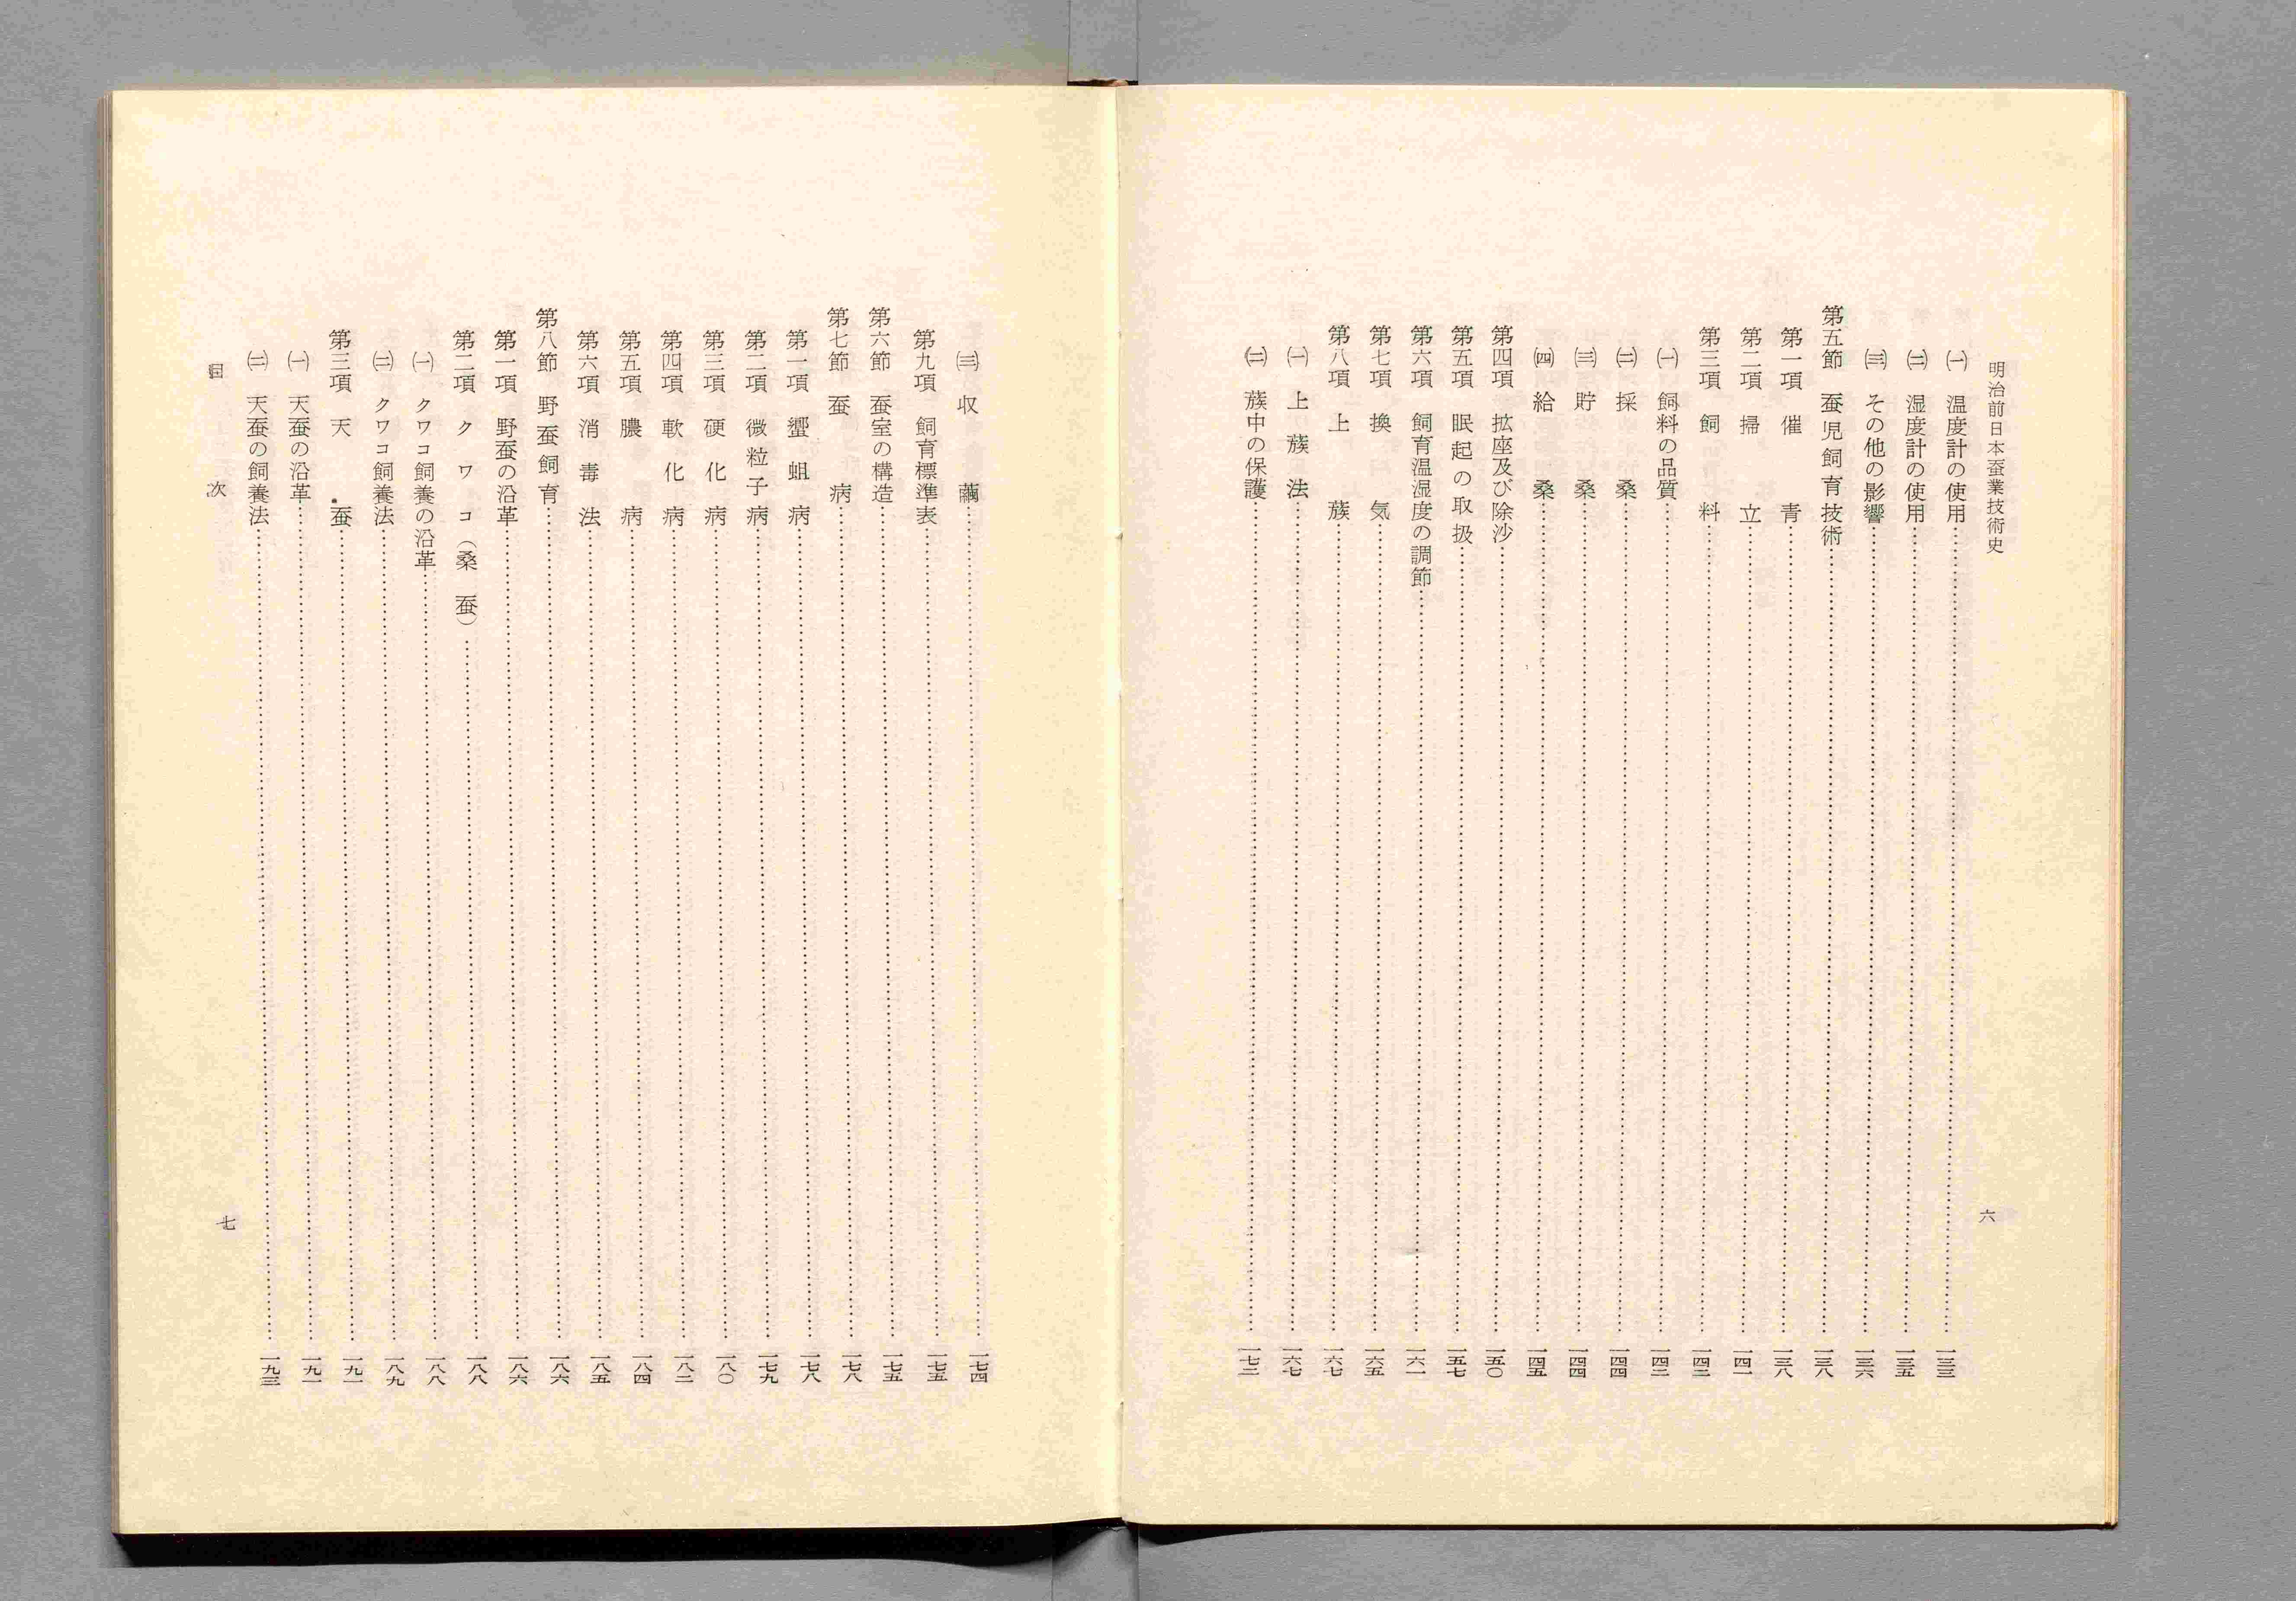 明治前日本蚕業技術史
六
㈠ 温度計の使用……一三三
㈡ 湿度計の使用……一三五
㈢ その他の影響……一三六
第五節 蚕児飼育技術……一三八
第一項 催青……一三八
第二項 掃立……一四一
第三項 飼料……一四三
㈠ 飼料の品質……一四三
㈡ 採桑……一四四
㈢ 貯桑……一四四
㈣ 給桑……一四五
第四項 拡座及び除沙……一五〇
第五項 眠起の取扱……一五七
第六項 飼育温湿度の調節……一六一
第七項 換気……一六五
第八項 上蔟……一六七
㈠ 上蔟法……一六七
㈡ 蔟中の保護……一七二
㈢ 収繭……一七四
第九項 飼育標準表……一七五
第六節 蚕室の構造……一七五
第七節 蚕病……一七八
第一項 蠁蛆病……一七八
第二項 微粒子病……一七九
第三項 硬化病……一八〇
第四項 軟化病……一八二
第五項 膿病……一八四
第六項 消毒法……一八五
第八節 野蚕飼育……一八六
第一項 野蚕の沿革……一八六
第二項 クワコ(桑蚕)……一八八
㈠ クワコ飼養の沿革……一八八
㈡ クワコ飼養法……一八九
第三項 天蚕……一九一
㈠ 天蚕の沿革……一九一
㈡ 天蚕の飼養法……一九三
目次
七